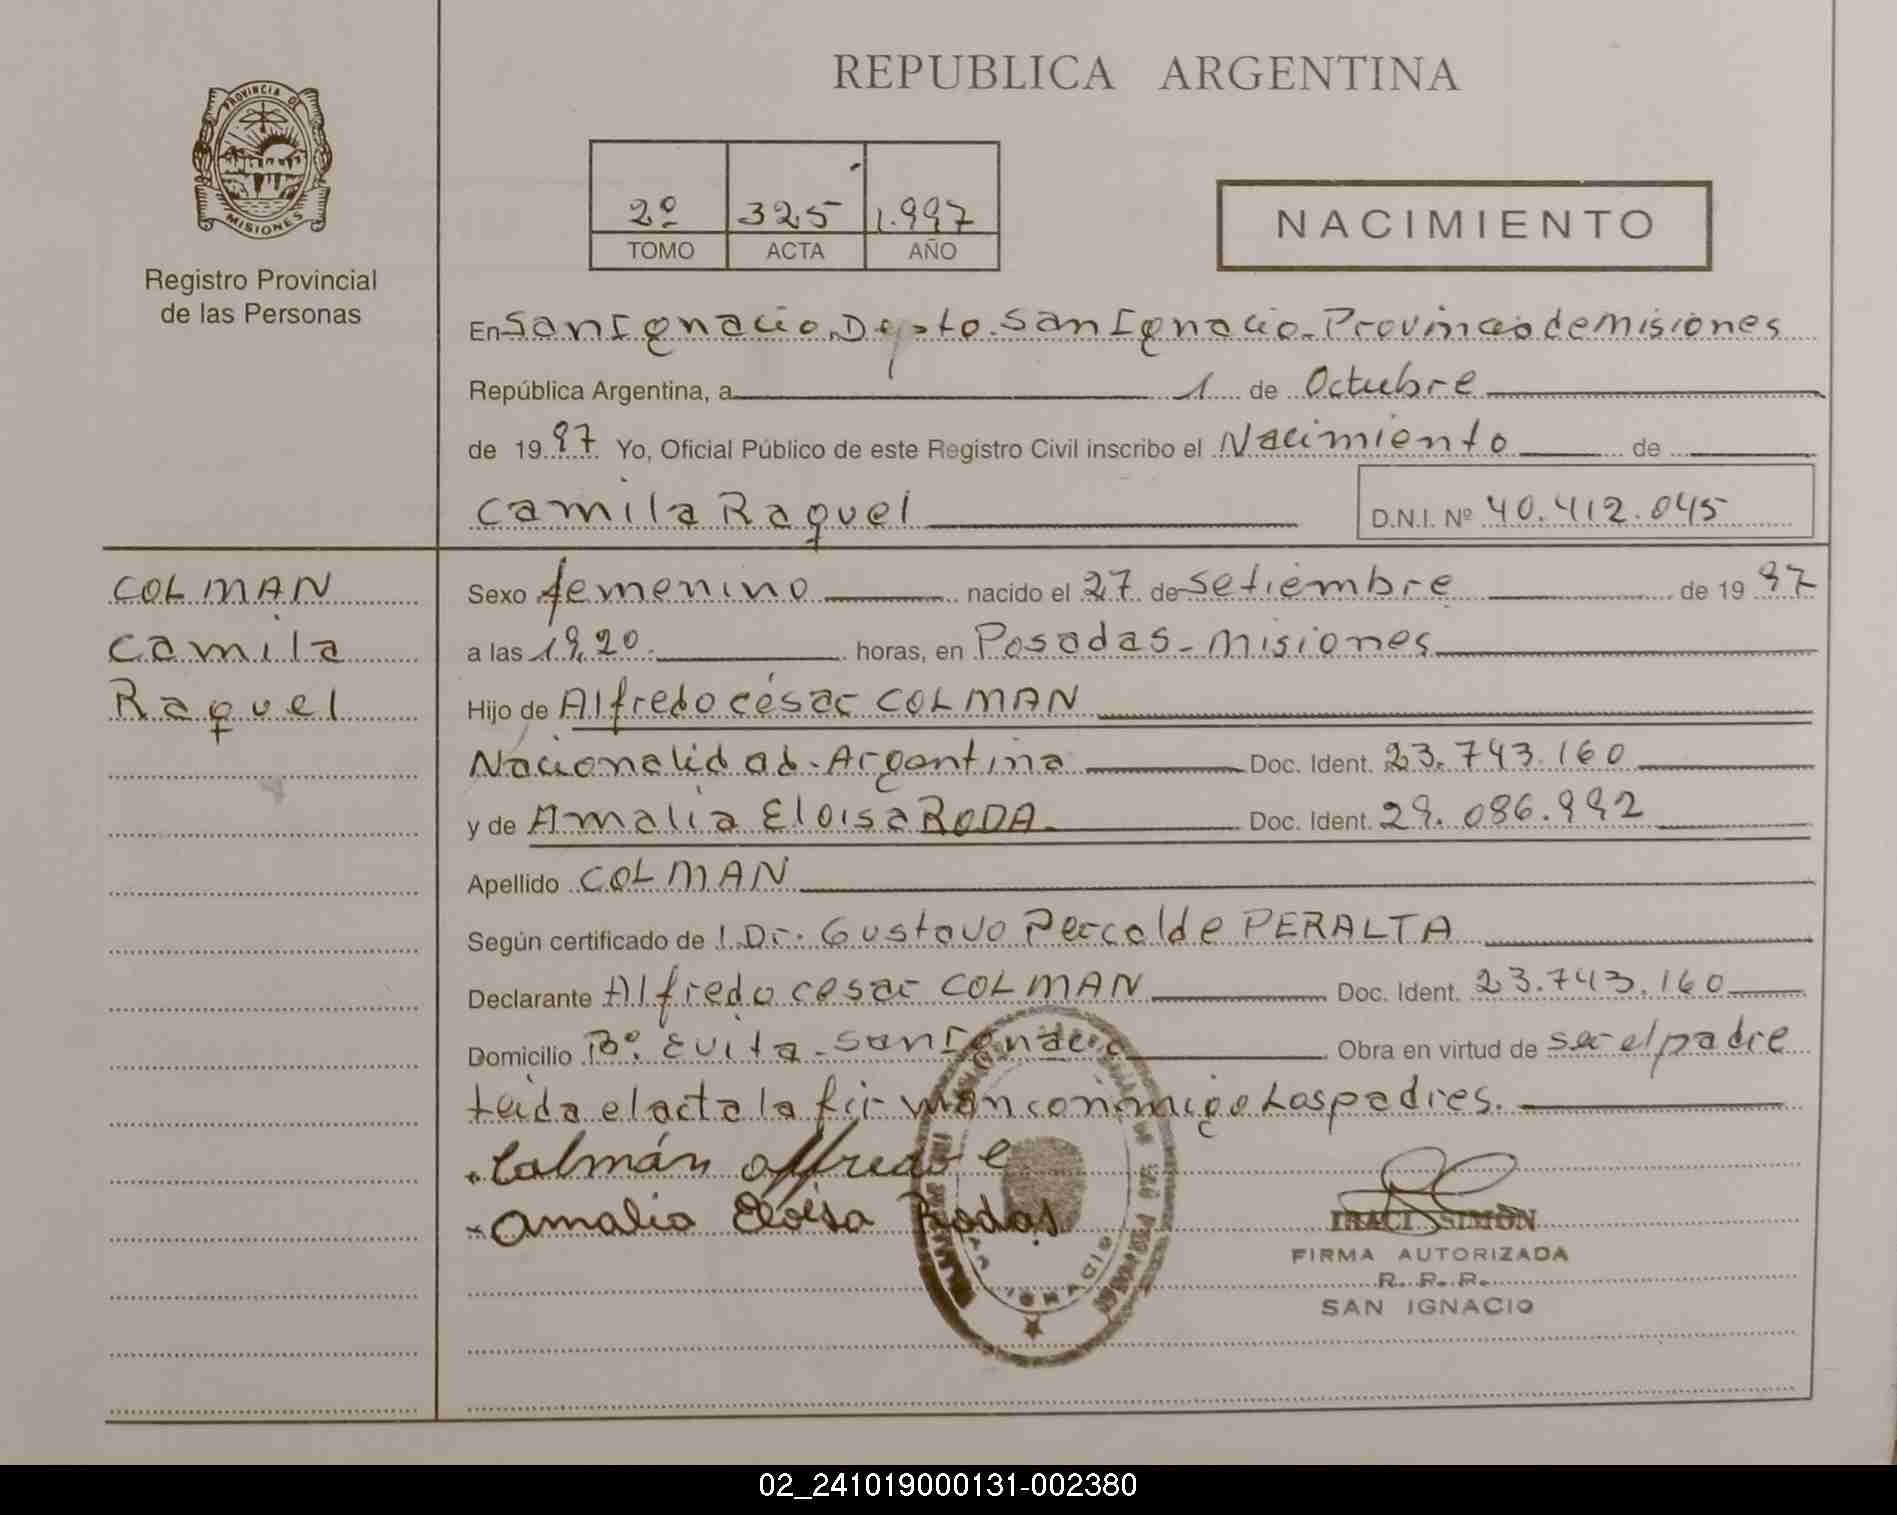 REPUBLICA ARGENTINA
PROVINCIA DE
MISIONES
Registro Provincial
de las Personas
2º 325 1.997
TOMO ACTA AÑO
NACIMIENTO
En San Ignacio, Depto. San Ignacio. Provincia de Misiones
República Argentina, a 1 de Octubre
de 1997 Yo, Oficial Público de este Registro Civil inscribo el Nacimiento de
Camila Raquel D.N.I. Nº 40.412.045
COLMAN
Camila
Raquel
Sexo femenino nacido el 27 de Setiembre de 1997
a las 19,20. horas, en Posadas - Misiones
Hijo de Alfredo césar COLMAN
Nacionalidad - Argentina Doc. Ident. 23.743.160
y de Amalia Eloisa RODA Doc. Ident. 29.086.992
Apellido COLMAN
Según certificado de l Dr. Gustavo PERALTA
Declarante Alfredo cesar COLMAN Doc. Ident. 23.743.160
Domicilio Bº. Evita - San Ignacio Obra en virtud de ser el padre
Leida el acta la firman conmigo Los padres.
Colmán alfredo c
Amalia Eloisa Rodas
IRACI SIMON
FIRMA AUTORIZADA
R. P. P.
SAN IGNACIO
02_241019000131-002380